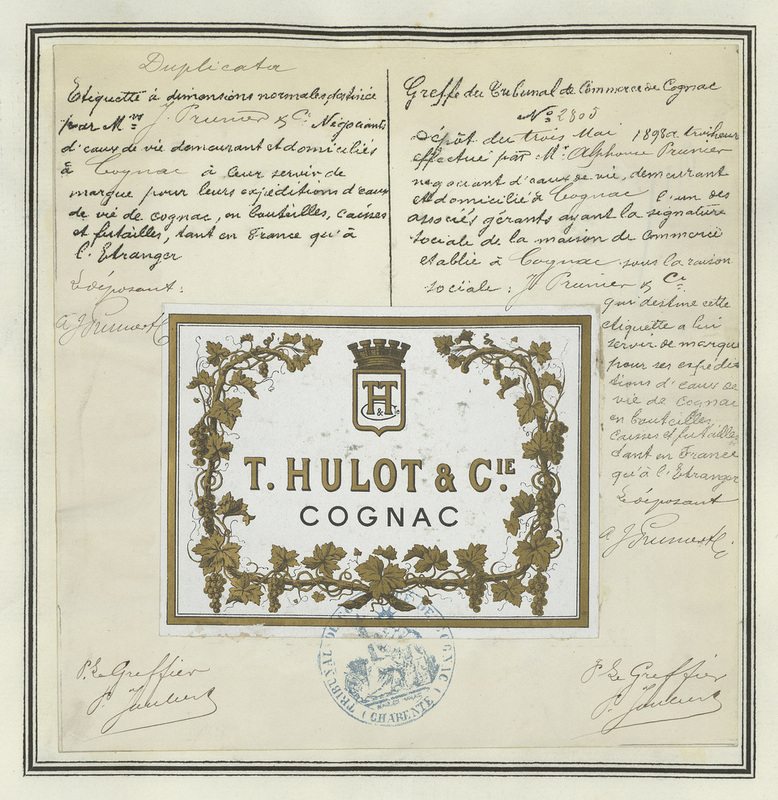 Duplicata
Etiquette à dimensions normales destinée
par Mrs J. Prunier & Cie Négociants
d'eaux de vie demeurant et domiciliés
à Cognac à leur servir de
marque pour leurs expéditions d'eaux
de vie de cognac, en bouteilles, caisses
et futailles, tant en France qu'à
l'Etranger
Le déposant :
Greffe du Tribunal de Commerce de Cognac
No 2805
Dépôt du trois Mai 1898 a trois heures
effectué par Mr Alphonse Prunier
négociant d'eaux de vie, demeurant
et domicilié à Cognac l'un des
associés gérants ayant la signature
sociale de la maison de commerce
établie à Cognac sous la raison
sociale : J. Prunier & Cie
qui destine cette
étiquette a lui
servir de marque
pour ses expédi
tions d'eaux de
vie de cognac
en bouteilles,
caisses et futailles
tant en France
qu'à l'Etranger
Le déposant
TH
& Cie
T. HULOT & CIE
COGNAC
P. Le Greffier
P. Le Greffier
TRIBUNAL DE COMMERCE DE COGNAC
(CHARENTE)